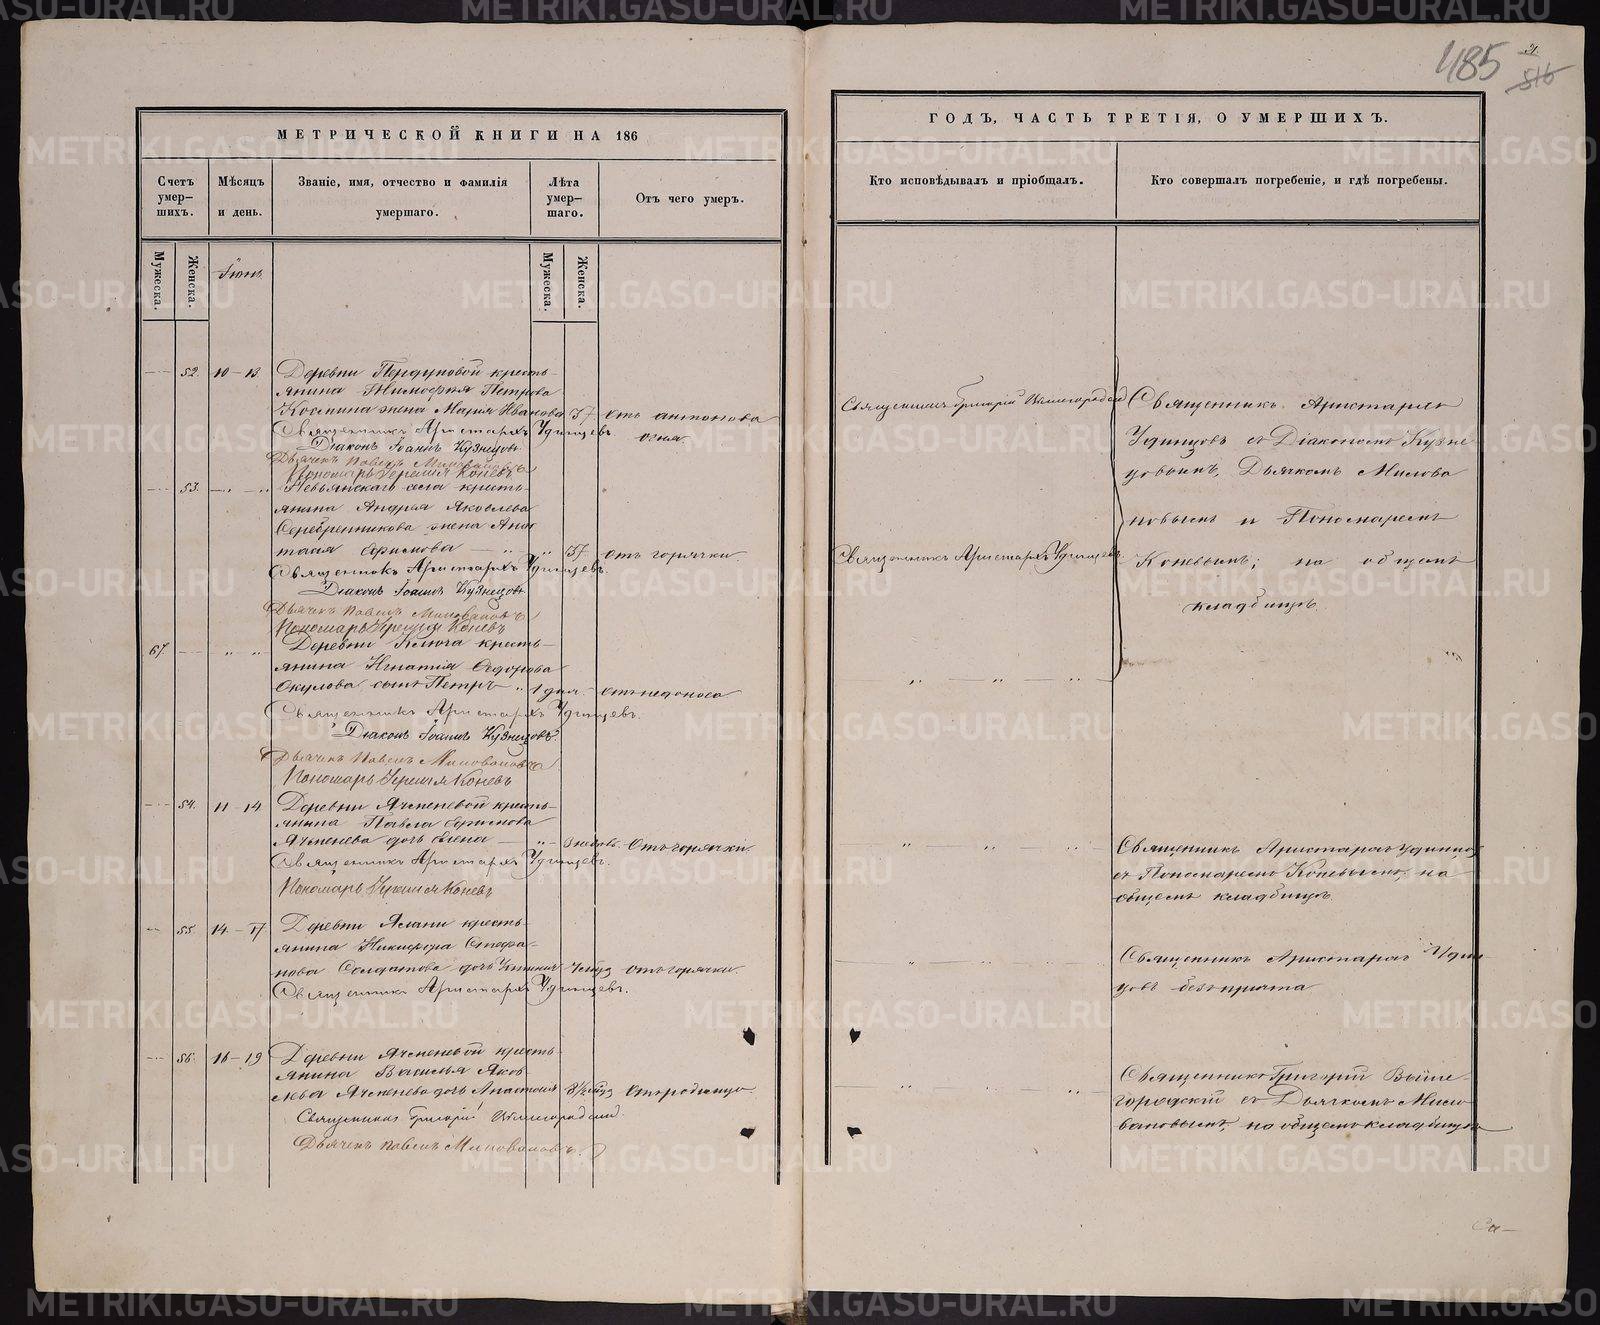 485
516
МЕТРИЧЕСКОЙ КНИГИ НА 186
Счетъ умер-шихъ.
Мѣсяцъ и день.
Званіе, имя, отчество и фамилія умершаго.
Лѣта умер-шаго.
Отъ чего умеръ.
Мужеска.
Женска.
Іюнь
Мужеска.
Женска.
52. 10 – 13. Деревни крестъ-
янина Петрова
жена Марія Иванова 57 отъ антонова
Священникъ Аристархъ Удинцевъ. огня.
Діаконъ Іоаннъ Кузнецовъ
Дьячекъ Павелъ Миловановъ
Пономарь Коневъ
53. Невьянскаго села кресть-
янина Андрея Яковлева
Серебренникова жена Анас
тасія Ефимова 57 отъ горячки
Священникъ Аристархъ Удинцевъ.
Діаконъ Іоаннъ Кузнецовъ
Дьячекъ Павелъ Миловановъ
Пономарь Коневъ
67. Деревни Ключа кресть-
янина Игнатія Федорова
Окулова сынъ Петръ 1 дня. отъ недоноса
Священникъ Аристархъ Удинцевъ.
Діаконъ Іоаннъ Кузнецовъ.
Дьячекъ Павелъ Миловановъ
Пономарь Коневъ
54. 11 – 14. Деревни Ячменевой кресть-
янина Павла Ефимова
Ячменева дочь Елена 3 недѣль. Отъ горячки.
Священникъ Аристархъ Удинцевъ.
Пономарь Коневъ
55. 14 – 17 Деревни Ялани кресть-
янина Никифора Стефа-
нова Солдатова дочь отъ горячки.
Священникъ Аристархъ Удинцевъ.
56. 16 – 19 Деревни Ячменевой кресть-
янина Василья Яков-
лева Ячменева дочь Анастасія 8½ отъ родимца
Священникъ Григорій Вышегородскій.
Дьячекъ Павелъ Миловановъ.
ГОДЪ, ЧАСТЬ ТРЕТІЯ, О УМЕРШИХЪ.
Кто исповѣдывалъ и пріобщалъ.
Кто совершалъ погребеніе, и гдѣ погребены.
Священникъ Григорій Вышегородскій
Священникъ Аристархъ Удинцевъ.
Священникъ Аристархъ
Удинцовъ съ Діакономъ Кузне
цовымъ, Дьячкомъ Милова
новымъ и Пономаремъ
Коневымъ; на общемъ
кладбищѣ.
Священникъ Аристархъ Удинцов
съ Пономаремъ Коневымъ, на
общемъ кладбищѣ.
Священникъ Аристархъ Удин
цовъ безъ причта
Священникъ Григорій Выше-
городскій съ Дьячкомъ Мило
вановымъ, на общемъ кладбищѣ
Са–
METRIKI.GASO-URAL.RU